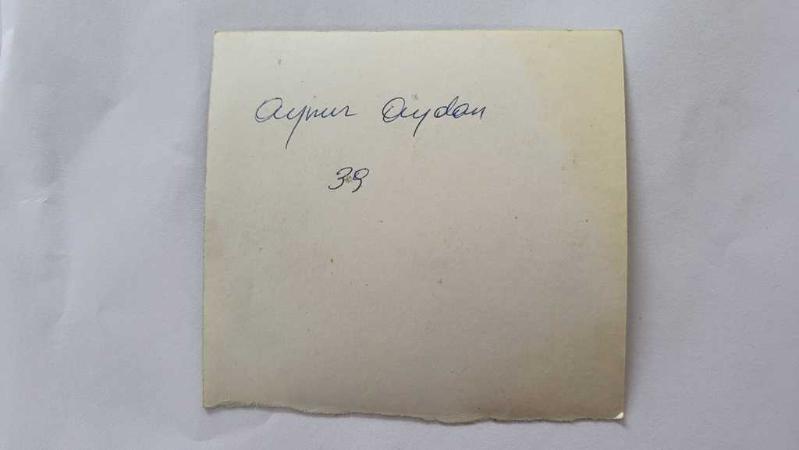 Aynur Aydan
39